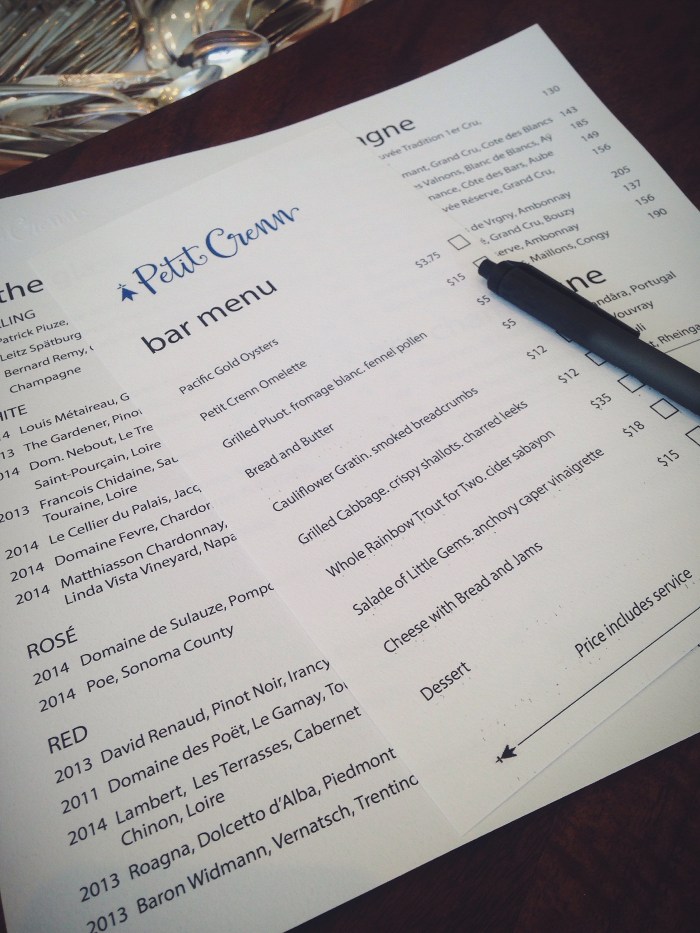 the
LING
Patrick Piuze,
Leitz Spätburg
Bernard Remy,
Champagne
HITE
14 Louis Métaireau, G
13 The Gardener, Pino
014 Dom. Nebout, Le Tre
Saint-Pourçain, Loire
2013 Francois Chidaine, Sau
Touraine, Loire
2014 Le Cellier du Palais, Jacq
2014 Domaine Fevre, Chardor
2014 Matthiasson Chardonnay,
Linda Vista Vineyard, Napa
ROSÉ
2014 Domaine de Sulauze, Pompo
2014 Poe, Sonoma County
RED
2013 David Renaud, Pinot Noir, Irancy
2011 Domaine des Poët, Le Gamay, Tou
2014 Lambert, Les Terrasses, Cabernet
Chinon, Loire
2013 Roagna, Dolcetto d'Alba, Piedmont
2013 Baron Widmann, Vernatsch, Trentino
Petit Crenn
bar menu
Pacific Gold Oysters $3.75
Petit Crenn Omelette $15
Grilled Pluot. fromage blanc. fennel pollen $5
Bread and Butter $5
Cauliflower Gratin. smoked breadcrumbs $12
Grilled Cabbage. crispy shallots. charred leeks $12
Whole Rainbow Trout for Two. cider sabayon $35
Salade of Little Gems. anchovy caper vinaigrette $18
Cheese with Bread and Jams $15
Dessert
Price includes service
agne
uvée Tradition 1er Cru, 130
mant, Grand Cru, Cote des Blancs 143
s Vainons, Blanc de Blancs, Aÿ 185
nance, Côte des Bars, Aube 149
vée Réserve, Grand Cru, 156
de Vrgny, Ambonnay 205
, Grand Cru, Bouzy 137
erve, Ambonnay 156
Maillons, Congy 190
ne
andâra, Portugal
Vouvray
uli
t, Rheinga